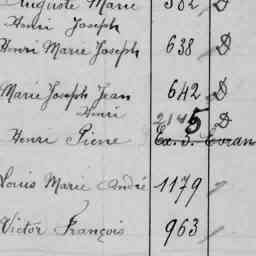 Auguste Marie 582 D
Henri Joseph
Henri Marie Joseph 638 D
Marie Joseph Jean 642 D
Henri 2145 D
Henri Pierre Ex. 3. Evran
Louis Marie André 1179
Victor François 963